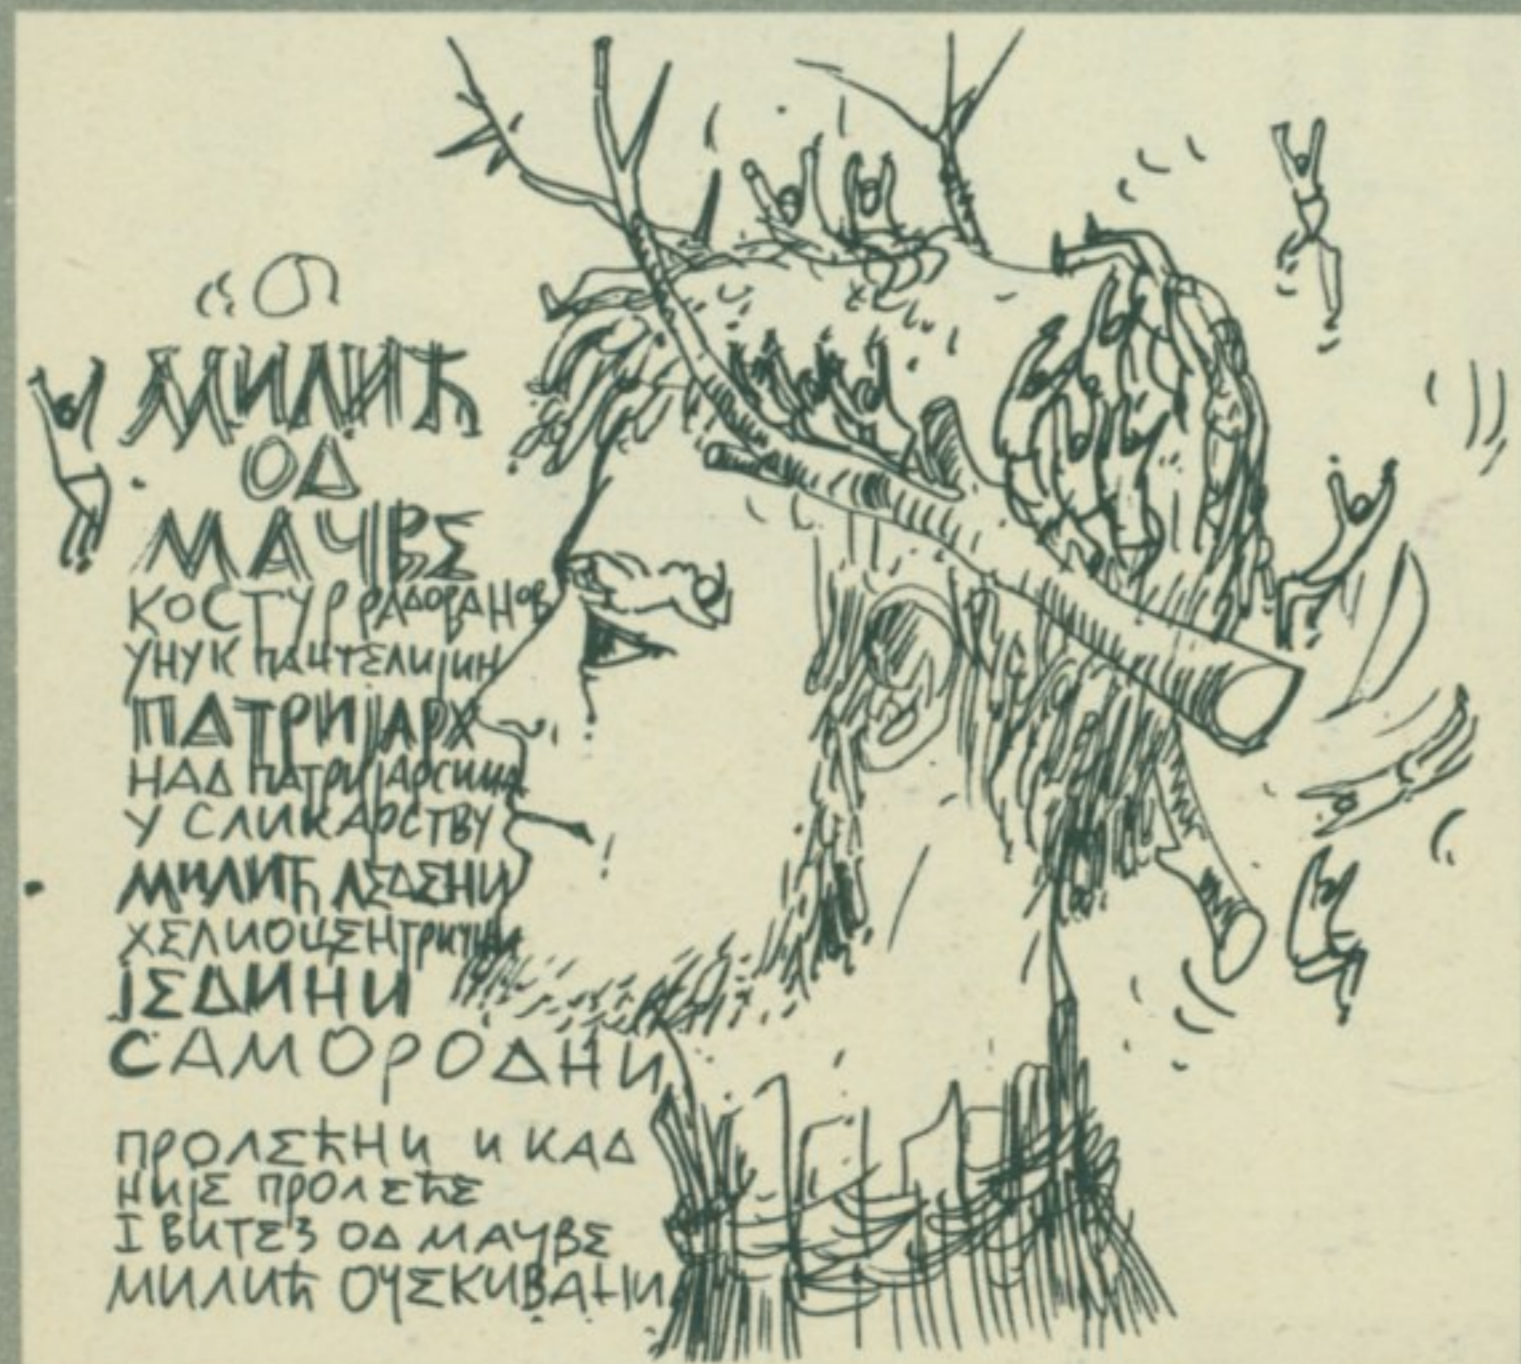 МИЛИЋ
ОД
МАЧВЕ
КОСТУР РАДОВАНОВ
УНУК ПАНТЕЛИЈИН
ПАТРИЈАРХ
НАД ПАТРИЈАРСИМА
У СЛИКАРСТВУ
МИЛИЋ ЛЕДЕНИ
ХЕЛИОЦЕНТРИЧНИ
ЈЕДИНИ
САМОРОДНИ
ПРОЛЕЋНИ И КАД
НИЈЕ ПРОЛЕЋЕ
I ВИТЕЗ ОД МАЧВЕ
МИЛИЋ ОЧЕКИВАНИ